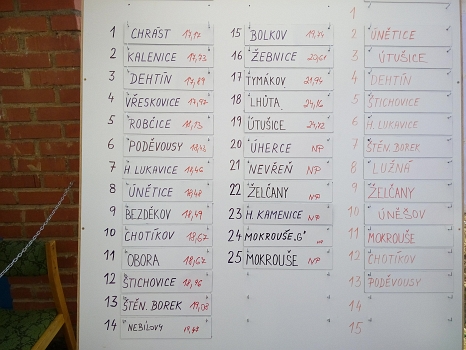 1 CHRÁST 17,17
2 KALENICE 17,73
3 DEHTÍN 17,89
4 VŘESKOVICE 17,97
5 ROBČICE 18,13
6 PODĚVOUSY 18,43
7 H. LUKAVICE 18,46
8 ÚNĚTICE 18,48
9 BEZDĚKOV 18,49
10 CHOTÍKOV 18,67
11 OBORA 18,72
12 ŠTICHOVICE 18,96
13 ŠTĚN. BOREK 19,08
14 NEBÍLOVY
15 BOLKOV
16 ŽEBNICE 20,61
17 TYMÁKOV 21,94
18 LHŮTA 24,16
19 ÚTUŠICE 24,72
20 ÚHERCE NP
21 NEVŘEŇ NP
22 ŽELČANY NP
23 H. KAMENICE NP
24 MOKROUŠE
25 MOKROUŠE NP
1
2 ÚNĚTICE
3 ÚTUŠICE
4 DEHTÍN
5 ŠTICHOVICE
6 H. LUKAVICE
7 ŠTĚN. BOREK
8 LUŽNÁ
9 ŽELČANY
10 ÚNĚŠOV
11 MOKROUŠE
12 CHOTÍKOV
13 PODĚVOUSY
14
15